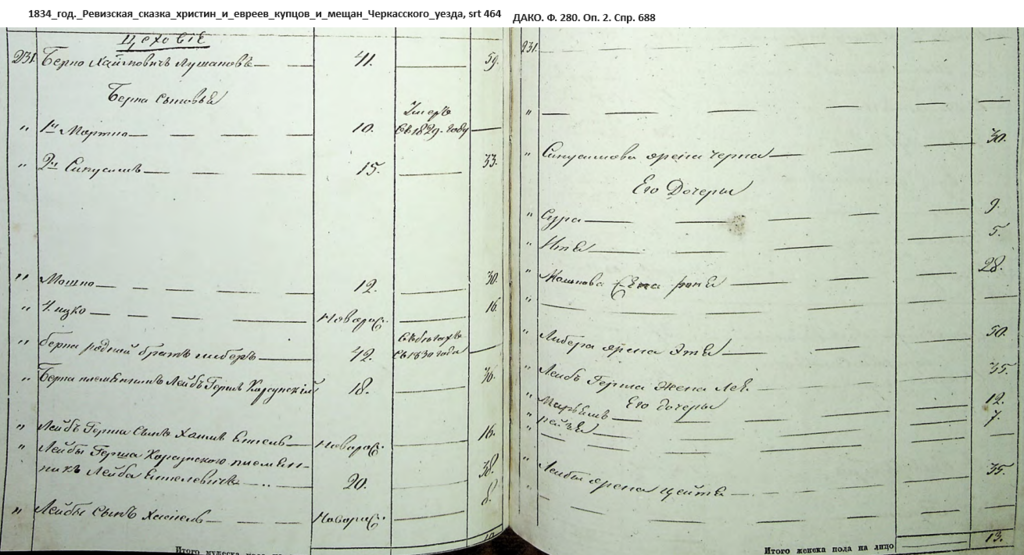 1834_год._Ревизская_сказка_христин_и_евреев_купцов_и_мещан_Черкасского_уезда, srt 464
ДАКО. Ф. 280. Оп. 2. Спр. 688
Цеховые
231 Берко Хаймовичъ Лушановъ 41. 59.
Берка сыновья
" 1й Мортко 10. Умеръ въ 1829. году
" 2й 15. 33.
" Мошко 12. 30.
" 4. Ицко Новорож. 16.
" Берка родной братъ Либеръ 42. въ 1830 года
" Берка племянникъ Лейбъ Гершъ Хорсунскій 18. 36.
" Лейбъ Герша сынъ Хаимъ Новорож. 16.
" Лейбы Герша Хорсунского племян-
никъ Лейба 20. 38.
" Лейбы сынъ Новорож. 8.
Итого мужеска пола на
231.
"
" жена Черна 30.
Его Дочеры
" Сура 9.
" 5.
" Мошкова жена 28.
"
" Либера жена Этя 50.
" Лейбъ Герша жена Лея 35.
Его дочеры
" 12.
" 7.
" Лейбы жена 35.
"
Итого женска пола на лицо 13.